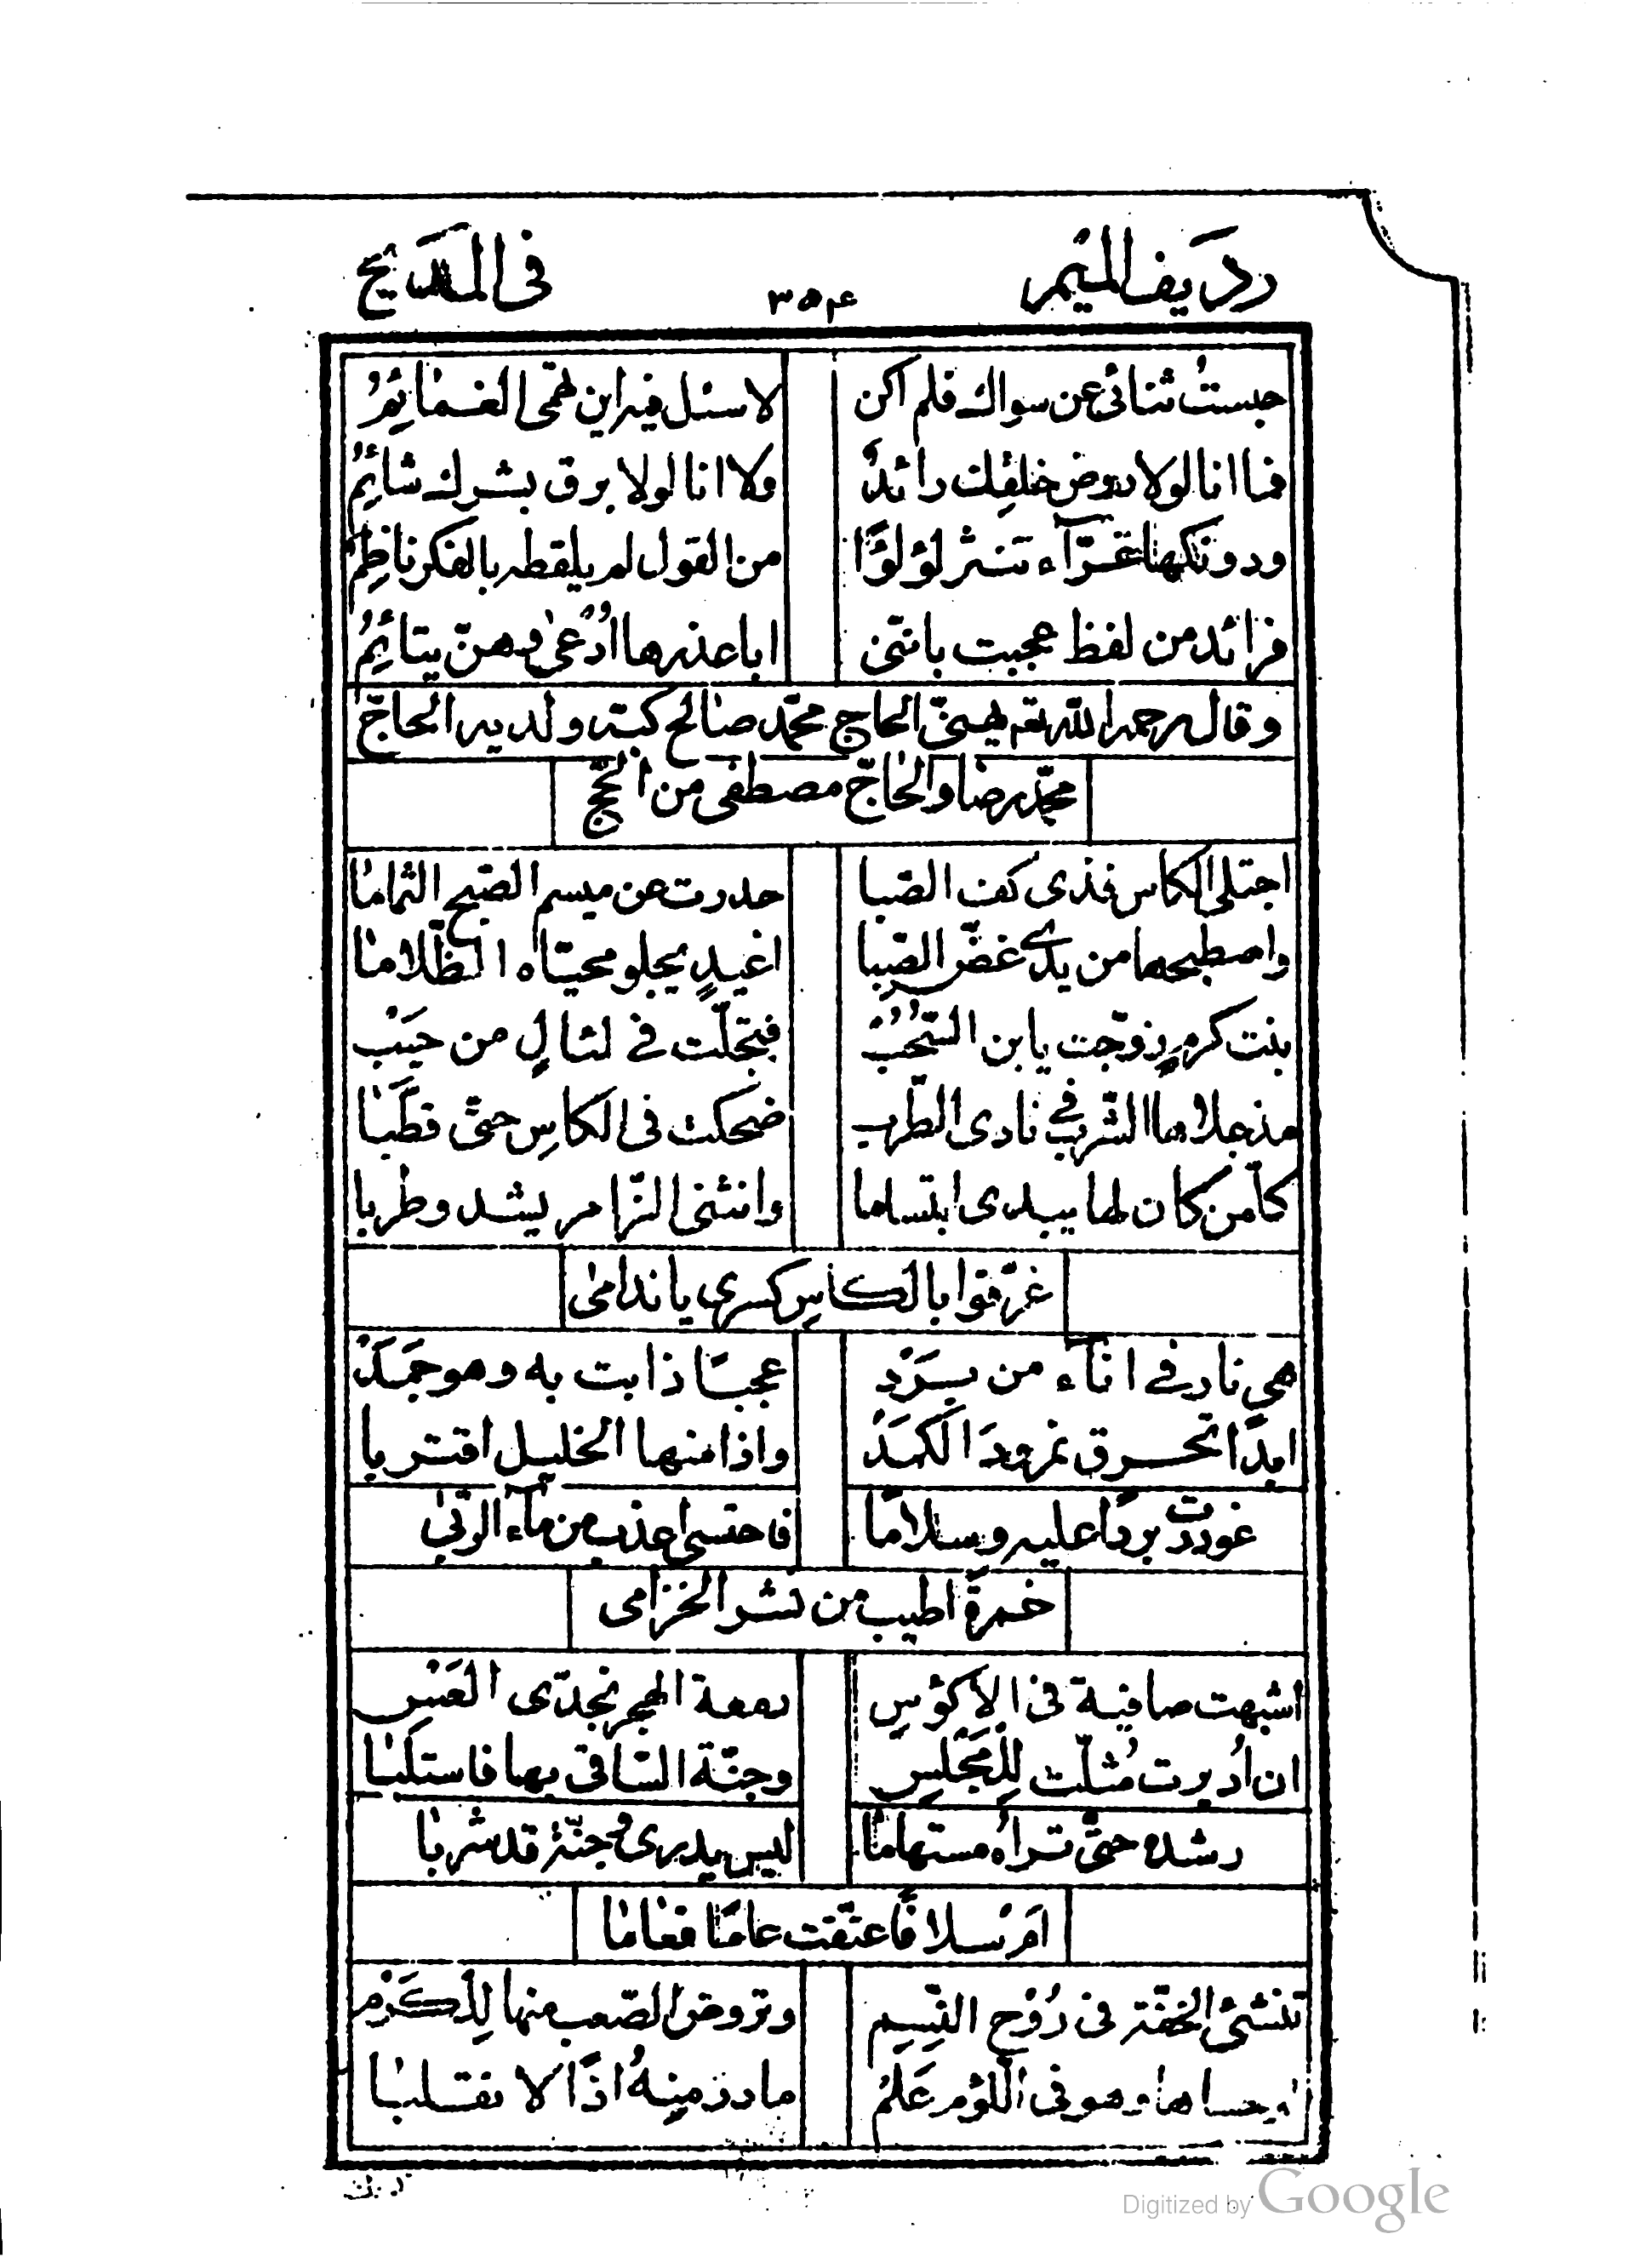 رديف الميم ٣٥٤ فى المديح
حبستُ ثنائى عن سواك فلم اكن لاسئل فيه اين تهمى الغمائمُ
فما انا لولا روض خلقك رائدٌ ولا انا لولا برق بشرك شائمُ
ودونكها غرّآء تنثر لؤلؤًا من القول لم يلقطه بالفكر ناظمُ
فرائد من لفظ عجبت بانّنى ابا عذرها اُدْعىٰ وهنّ يتائمُ
وقال رحمه الله تعه يهنىّ الحاج محمّد صالح كبّه ولديه الحاجّ
محمّد رضا والحاجّ مصطفى من الحجّ
اجتلى الكاس فذى كف الصّبا حدرت عن ميسم الصّبح اللثاما
واصطبحها من يدى غضّ الصّبا اغيدٍ يجلو محيّاه الظّلاما
بنت كرمٍ زوّجت يابن السّحُبْ فتجلّت فى لئالٍ من حَبَبْ
مذ جلاها الشّرب فى نادى الطّرب ضحكت فى الكاسِ حتىّ قطّبَا
كلّ من كان لها يبدى ابتساما وانثنى الزّامر يشدو طربا
غرّقوا بالكاسِ كسرى يا ندامىٰ
هى نار فى انآء من بَرَدْ عجبًا ذابت به وهو جَمَدْ
ابدًا تحرق نمرودَ الكَمَدْ واذا منها الخليل اقتربا
غودرت بردًا عليه وسلامًا فاحتسى اعذب من مآء الرّبىٰ
خمرةً اطيب من نشر الخزامى
اشبهت صافية فى الاكؤسِ دمعة الهجر بخدّى العَسِ
ان اُديرت مُثلّت لِلْمَجْلِسِ وجنّة السّاقى بها فاستكبا
رشده حتىّ تراهُ مستهامًا ليس يدرى وجنّةً قد شربا
اَمْ سلافًا عتّقت عامًا فعاما
تنشئ الخفّة فى رُوْح النّسِيم وتروض الصّعب منها لِلكَرَمْ
حساها وهو فى اللّؤم عَلَمْ مادرٌ منه اذًا لا نقلبا